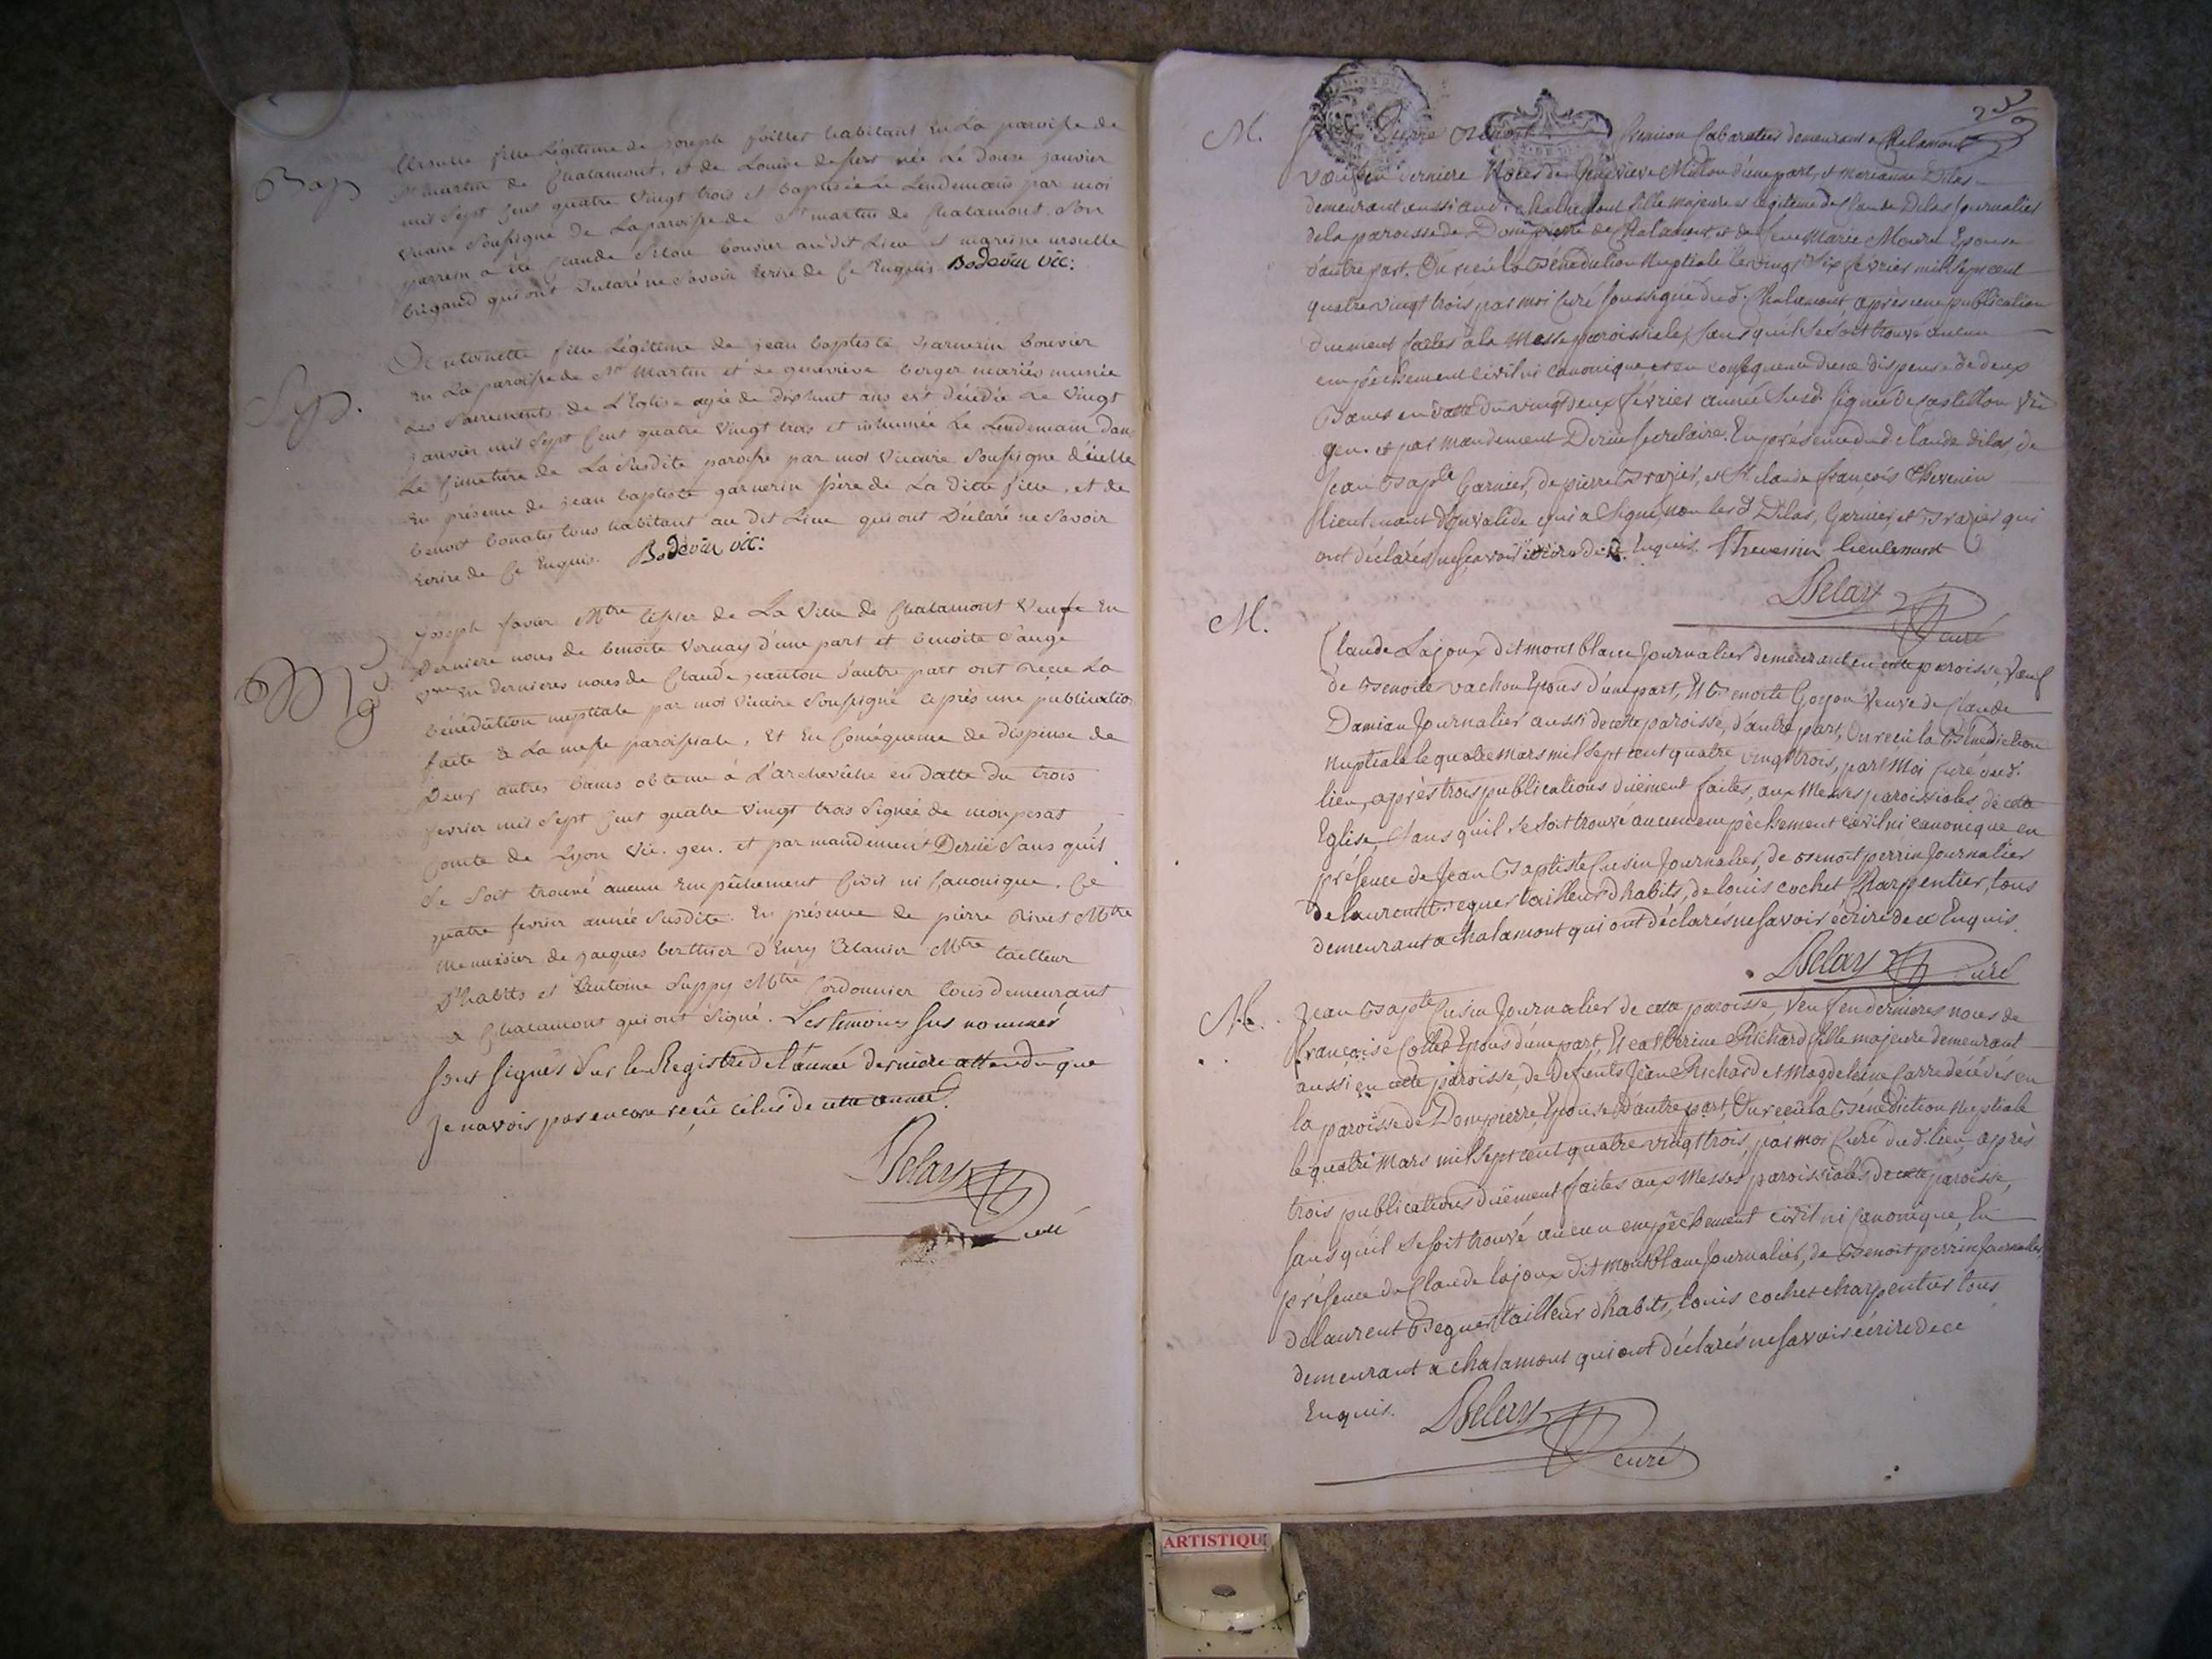 Bap
Ursulle fille Légitime de joseph juillet habitant En La paroisse de
St martin de Chalamont, et de Louise née Le douze janvier
mil Sept Cent quatre vingt trois et baptisée Le Lendemain par moi
vicaire Soussigné de La paroisse de St martin de Chalamont. Son
parrein a été Claude bouvier audit Lieu et mareine ursulle
brigand qui ont Déclaré ne Savoir Ecrire de Ce Enquis. Bodevin vic:
Sep.
fille Légitime de jean baptiste Garnerin bouvier
En La paroisse de St Martin et de geneviève berger mariés munie
Les Sacrements de L'Eglise agée de dixhuit ans est décédée Le vingt
janvier mil Sept Cent quatre vingt trois et inhumée Le Lendemain dans
Le Cimetière de La Susdite paroisse par moi vicaire Soussigné d'icelle
En présence de jean baptiste garnerin père de La ditte fille, et de
benoit tous habitant au dit Lieu qui ont Déclaré ne Savoir
Ecrire de Ce Enquis. Bodevin vic:
Mg
joseph favier Mtre tessier de La ville de Chalamont Veuf En
Derniere noces de benoite vernay d'une part et benoite Sauge
Vve En dernieres noces de Claude jeanton d'autre part ont reçu La
bénédiction nuptiale par moi vicaire Soussigné après une publication
faite à La messe paroissiale, et En Conséquence de dispense de
Deux autres bans obtenue à L'archevêché en datte du trois
fevrier mil Sept Cent quatre vingt trois Signée de monpesat
Comte de Lyon vic. gen. et par mandement Deriié Sans qu'il
Se Soit trouvé aucun Empêchement Civil ni Canonique. Ce
quatre fevrier année Susdite. En présence de pierre rivet Mtre
menuisier de jaques berthier d'Eury Mtre tailleur
D'habits et Antoine Suppy Mtre Cordonnier tous demeurant
a Chalamont qui ont Signé. Les temoins sus nommés
sont signés sur le Registre de l'année dernière attendu que
je n'avois pas encore reçu celui de cette année.
Delay
curé
M.
Pierre Benoit Cabaretier demeurant a Chalamont
veuf en derniere Noces de Genevieve Milion d'une part, et Marianne Dilas
demeurant aussi aud. Chalamont fille majeure et légitime de Claude Dilas journalier
de la paroisse de Dompierre de Chalamont et de feue Marie Epouse
d'autre part. Ont reçu la Bénédiction Nuptiale le vingt Six février mil sept cent
quatre vingt trois par moi Curé soussigné dud. Chalamont après une publication
duement faites à la Messe paroissiale, sans qu'il se soit trouvé aucun
empêchement civil ni canonique et en conséquence d'une dispense de deux
Bans en datte du vingt deux février année Susd. signée de Castillon Vic
gen. et par mandement Deriié secretaire. En présence dud. Claude Dilas, de
Jean Bapte Garnier, de pierre Brazier, et Sr claude françois Thevenin
lieutenant d'invalide qui a Signé, non les d. Dilas, Garnier et Brazier qui
ont déclarés ne savoir écrire de ce Enquis. Thevenin lieutenant
Delay
curé
M.
Claude Lajoux dit mont blanc Journalier demeurant en cette paroisse, Veuf
de Benoite vachon Epous d'une part, Et Benoite Goyon Veuve de Claude
Damian Journalier aussi de cette paroisse, d'autre part, Ont reçu la Bénédiction
Nuptiale le quatre Mars mil Sept cent quatre vingt trois, par Moi Curé dud.
lieu, après trois publications düement faites, aux Messes paroissiales de cette
Eglise, Sans qu'il se soit trouvé aucun empêchement civil ni canonique en
présence de Jean Baptiste Cusin Journalier, de Benoit perrin Journalier
de laurent Beguer tailleur d'habits, de louis cochet Charpentier, tous
demeurant a chalamont qui ont déclarés ne savoir écrire de ce Enquis.
Delay Curé
M.
Jean Bapte Cusin Journalier de cette paroisse, Veuf en dernieres noces de
Françoise Collet Epous d'une part, Et Catherine Richard fille majeure demeurant
aussi en cette paroisse, de Defunts Jean Richard et Magdeleine Carre décédés en
la paroisse de Dompierre, Epouse d'autre part, Ont reçu la Bénédiction Nuptiale
le quatre Mars mil Sept cent quatre vingt trois, par moi Curé dud. lieu, après
trois publications duëment faites aux Messes paroissiales de cette paroisse,
sans qu'il se soit trouvé aucun empêchement civil ni Canonique, En
présence de Claude lajoux dit mont blanc Journalier, de Benoit perrin Journalier
de laurent Beguer tailleur d'habits, louis cochet charpentier tous
demeurant a chalamont qui ont déclarés ne savoir écrire de ce
Enquis. Delay
curé
ARTISTIQU